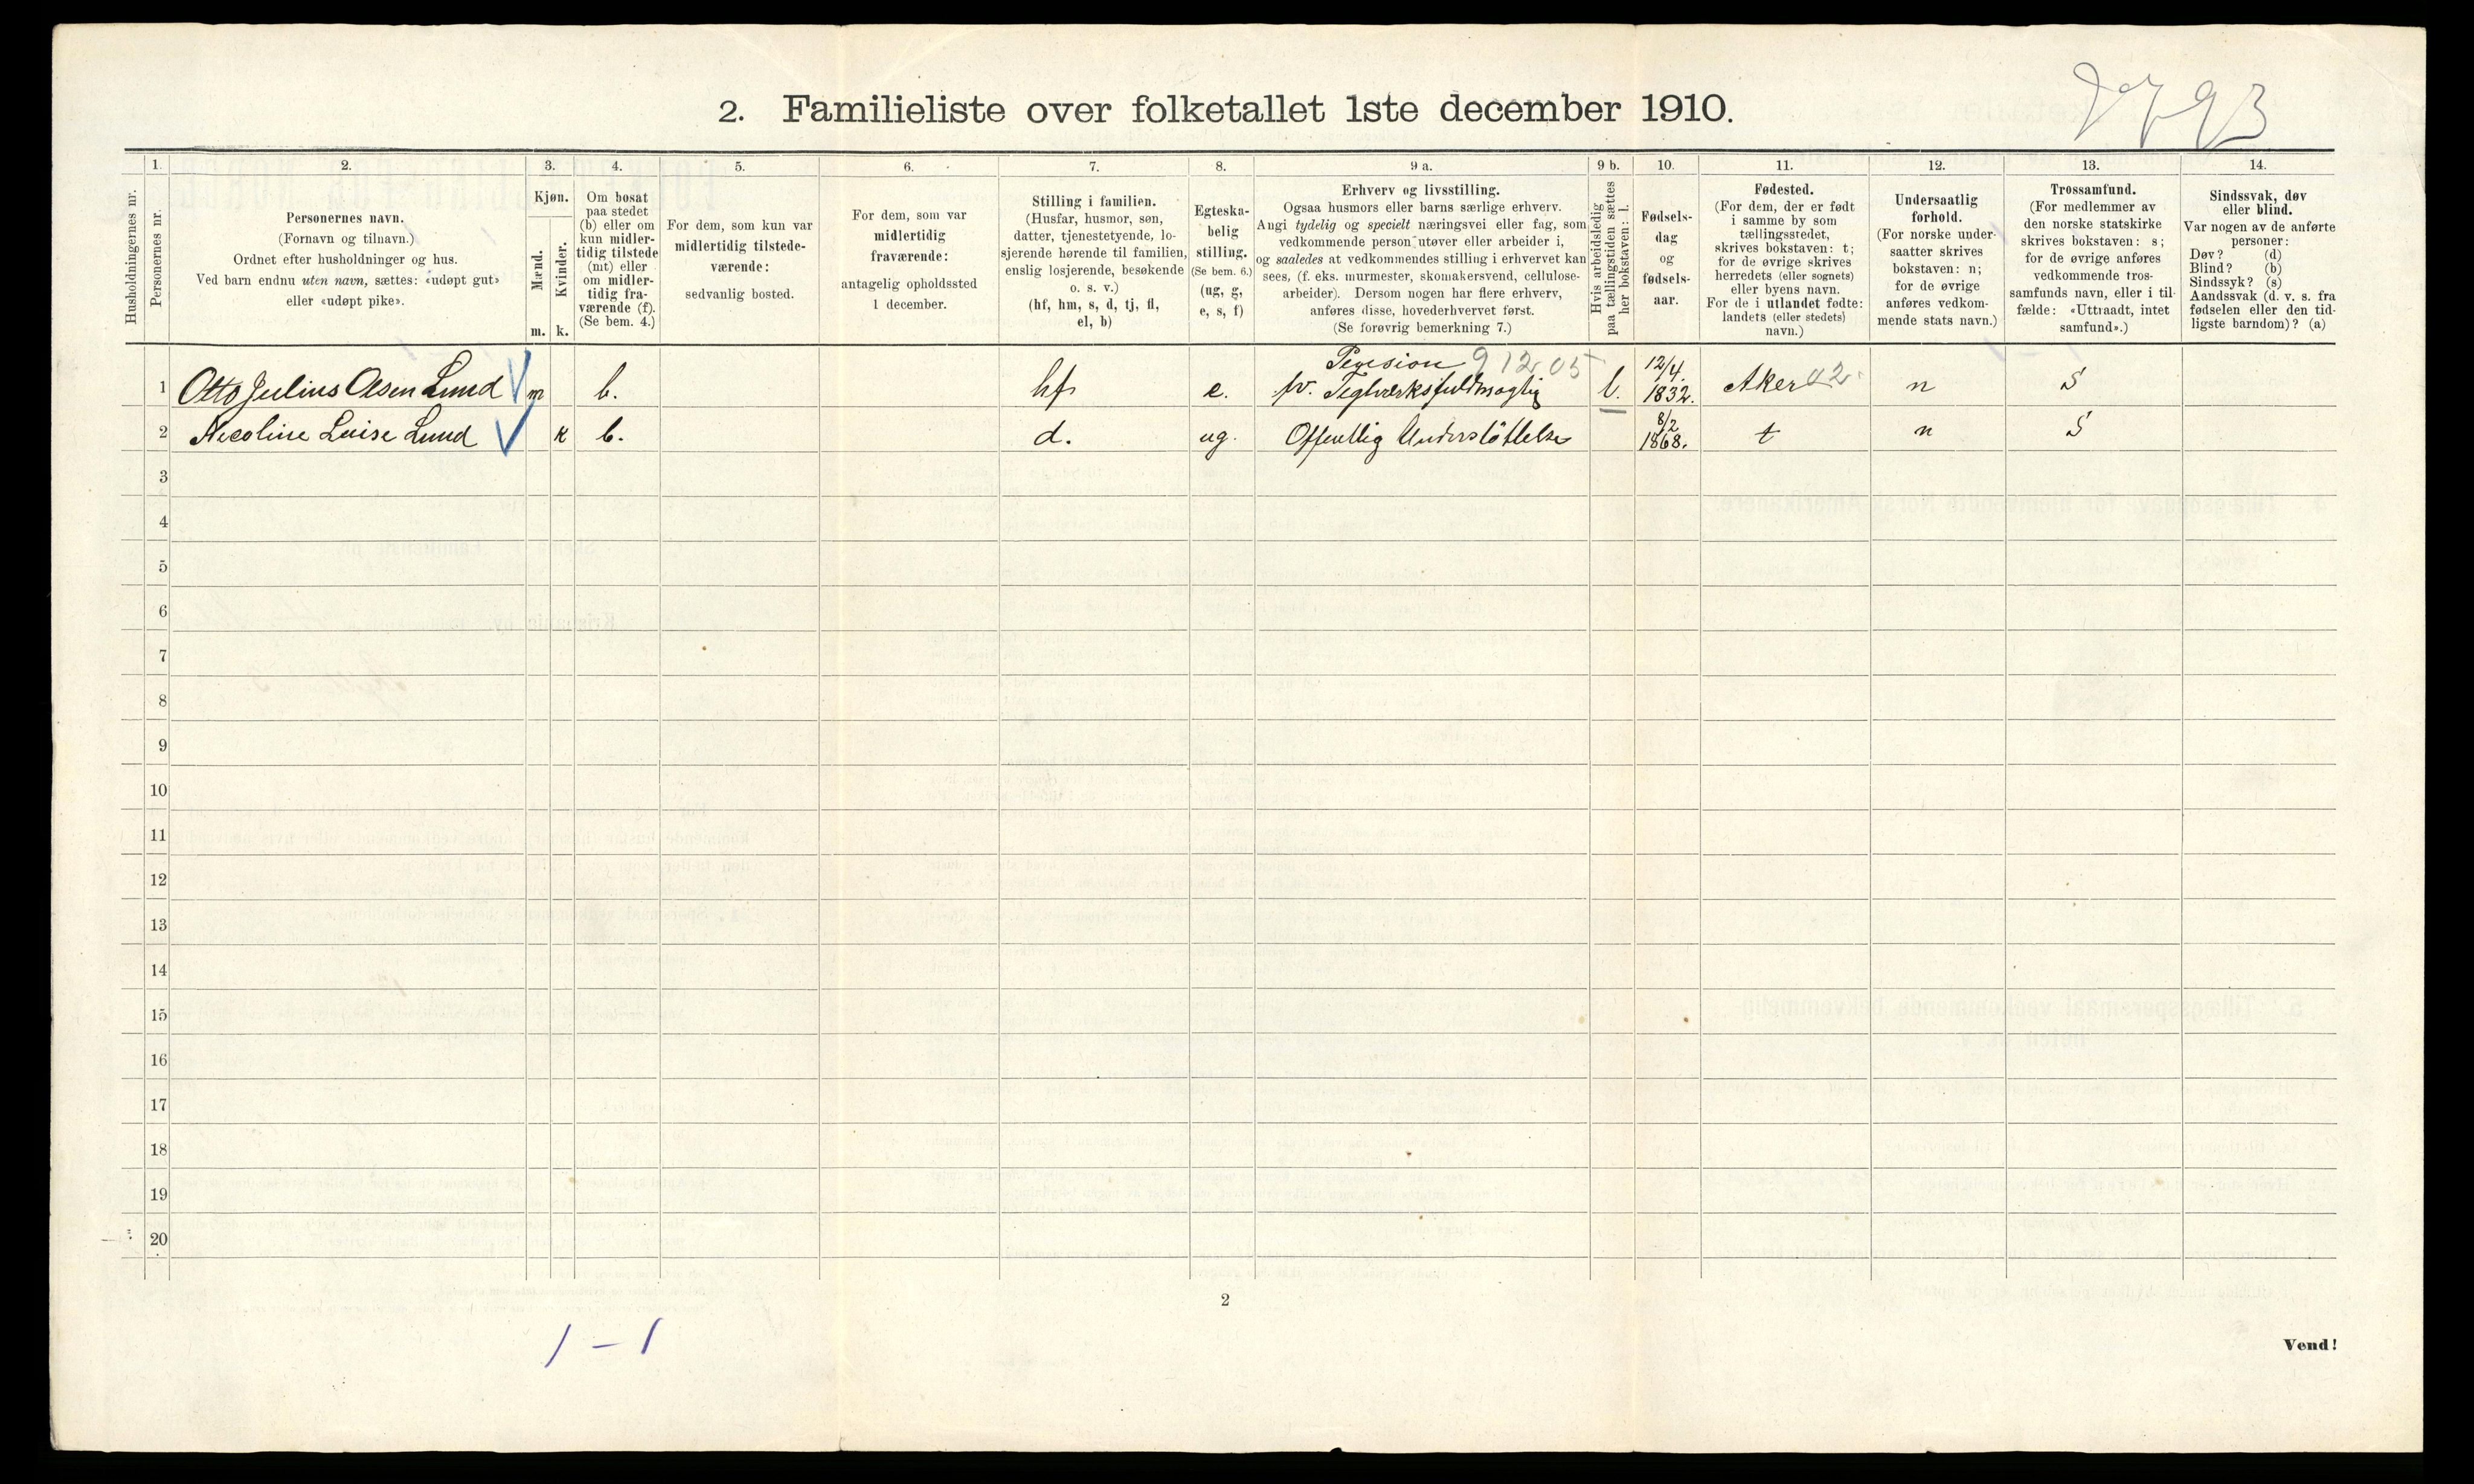 2. Familieliste over folketallet 1ste december 1910.
Husholdningernes nr.
1.
Personernes nr.
2.
Personernes navn.
(Fornavn og tilnavn.)
Ordnet efter husholdninger og hus.
Ved barn endnu uten navn, sættes: «udøpt gut»
eller «udøpt pike».
3.
Kjøn.
Mænd.
m.
Kvinder.
k.
4.
Om bosat
paa stedet
(b) eller om
kun midler-
tidig tilstede
(mt) eller
om midler-
tidig fra-
værende (f).
(Se bem. 4.)
5.
For dem, som kun var
midlertidig tilstede-
værende:
sedvanlig bosted.
6.
For dem, som var
midlertidig
fraværende:
antagelig opholdssted
1 december.
7.
Stilling i familien.
(Husfar, husmor, søn,
datter, tjenestetyende, lo-
sjerende hørende til familien,
enslig losjerende, besøkende
o. s. v.)
(hf, hm, s, d, tj, fl,
el, b)
8.
Egteska-
belig
stilling.
(Se bem. 6.)
(ug, g,
e, s, f)
9 a.
Erhverv og livsstilling.
Ogsaa husmors eller barns særlige erhverv.
Angi tydelig og specielt næringsvei eller fag, som
vedkommende person utøver eller arbeider i,
og saaledes at vedkommendes stilling i erhvervet kan
sees, (f. eks. murmester, skomakersvend, cellulose-
arbeider). Dersom nogen har flere erhverv,
anføres disse, hovederhvervet først.
(Se forøvrig bemerkning 7.)
9 b.
Hvis arbeidsledig
paa tællingstiden sættes
her bokstaven: l.
10.
Fødsels-
dag
og
fødsels-
aar.
11.
Fødested.
(For dem, der er født
i samme by som
tællingsstedet,
skrives bokstaven: t;
for de øvrige skrives
herredets (eller sognets)
eller byens navn.
For de i utlandet fødte:
landets (eller stedets)
navn.)
12.
Undersaatlig
forhold.
(For norske under-
saatter skrives
bokstaven: n;
for de øvrige
anføres vedkom-
mende stats navn.)
13.
Trossamfund.
(For medlemmer av
den norske statskirke
skrives bokstaven: s;
for de øvrige anføres
vedkommende tros-
samfunds navn, eller i til-
fælde: «Uttraadt, intet
samfund».)
14.
Sindssvak, døv
eller blind.
Var nogen av de anførte
personer:
Døv? (d)
Blind? (b)
Sindssyk? (s)
Aandssvak (d. v. s. fra
fødselen eller den tid-
ligste barndom)? (a)
Pension 91205
1 Otto Julius Olsen Lund m b. hf e. fv. Teglverksfuldmægtig l. 12/4. 1832. Aker 02 n S
2 Nicoline Luise Lund k b. d. ug. Offentlig Understöttelse 8/2 1868. t n S
3
4
5
6
7
8
9
10
11
12
13
14
15
16
17
18
19
20
2
1 – 1
Vend!